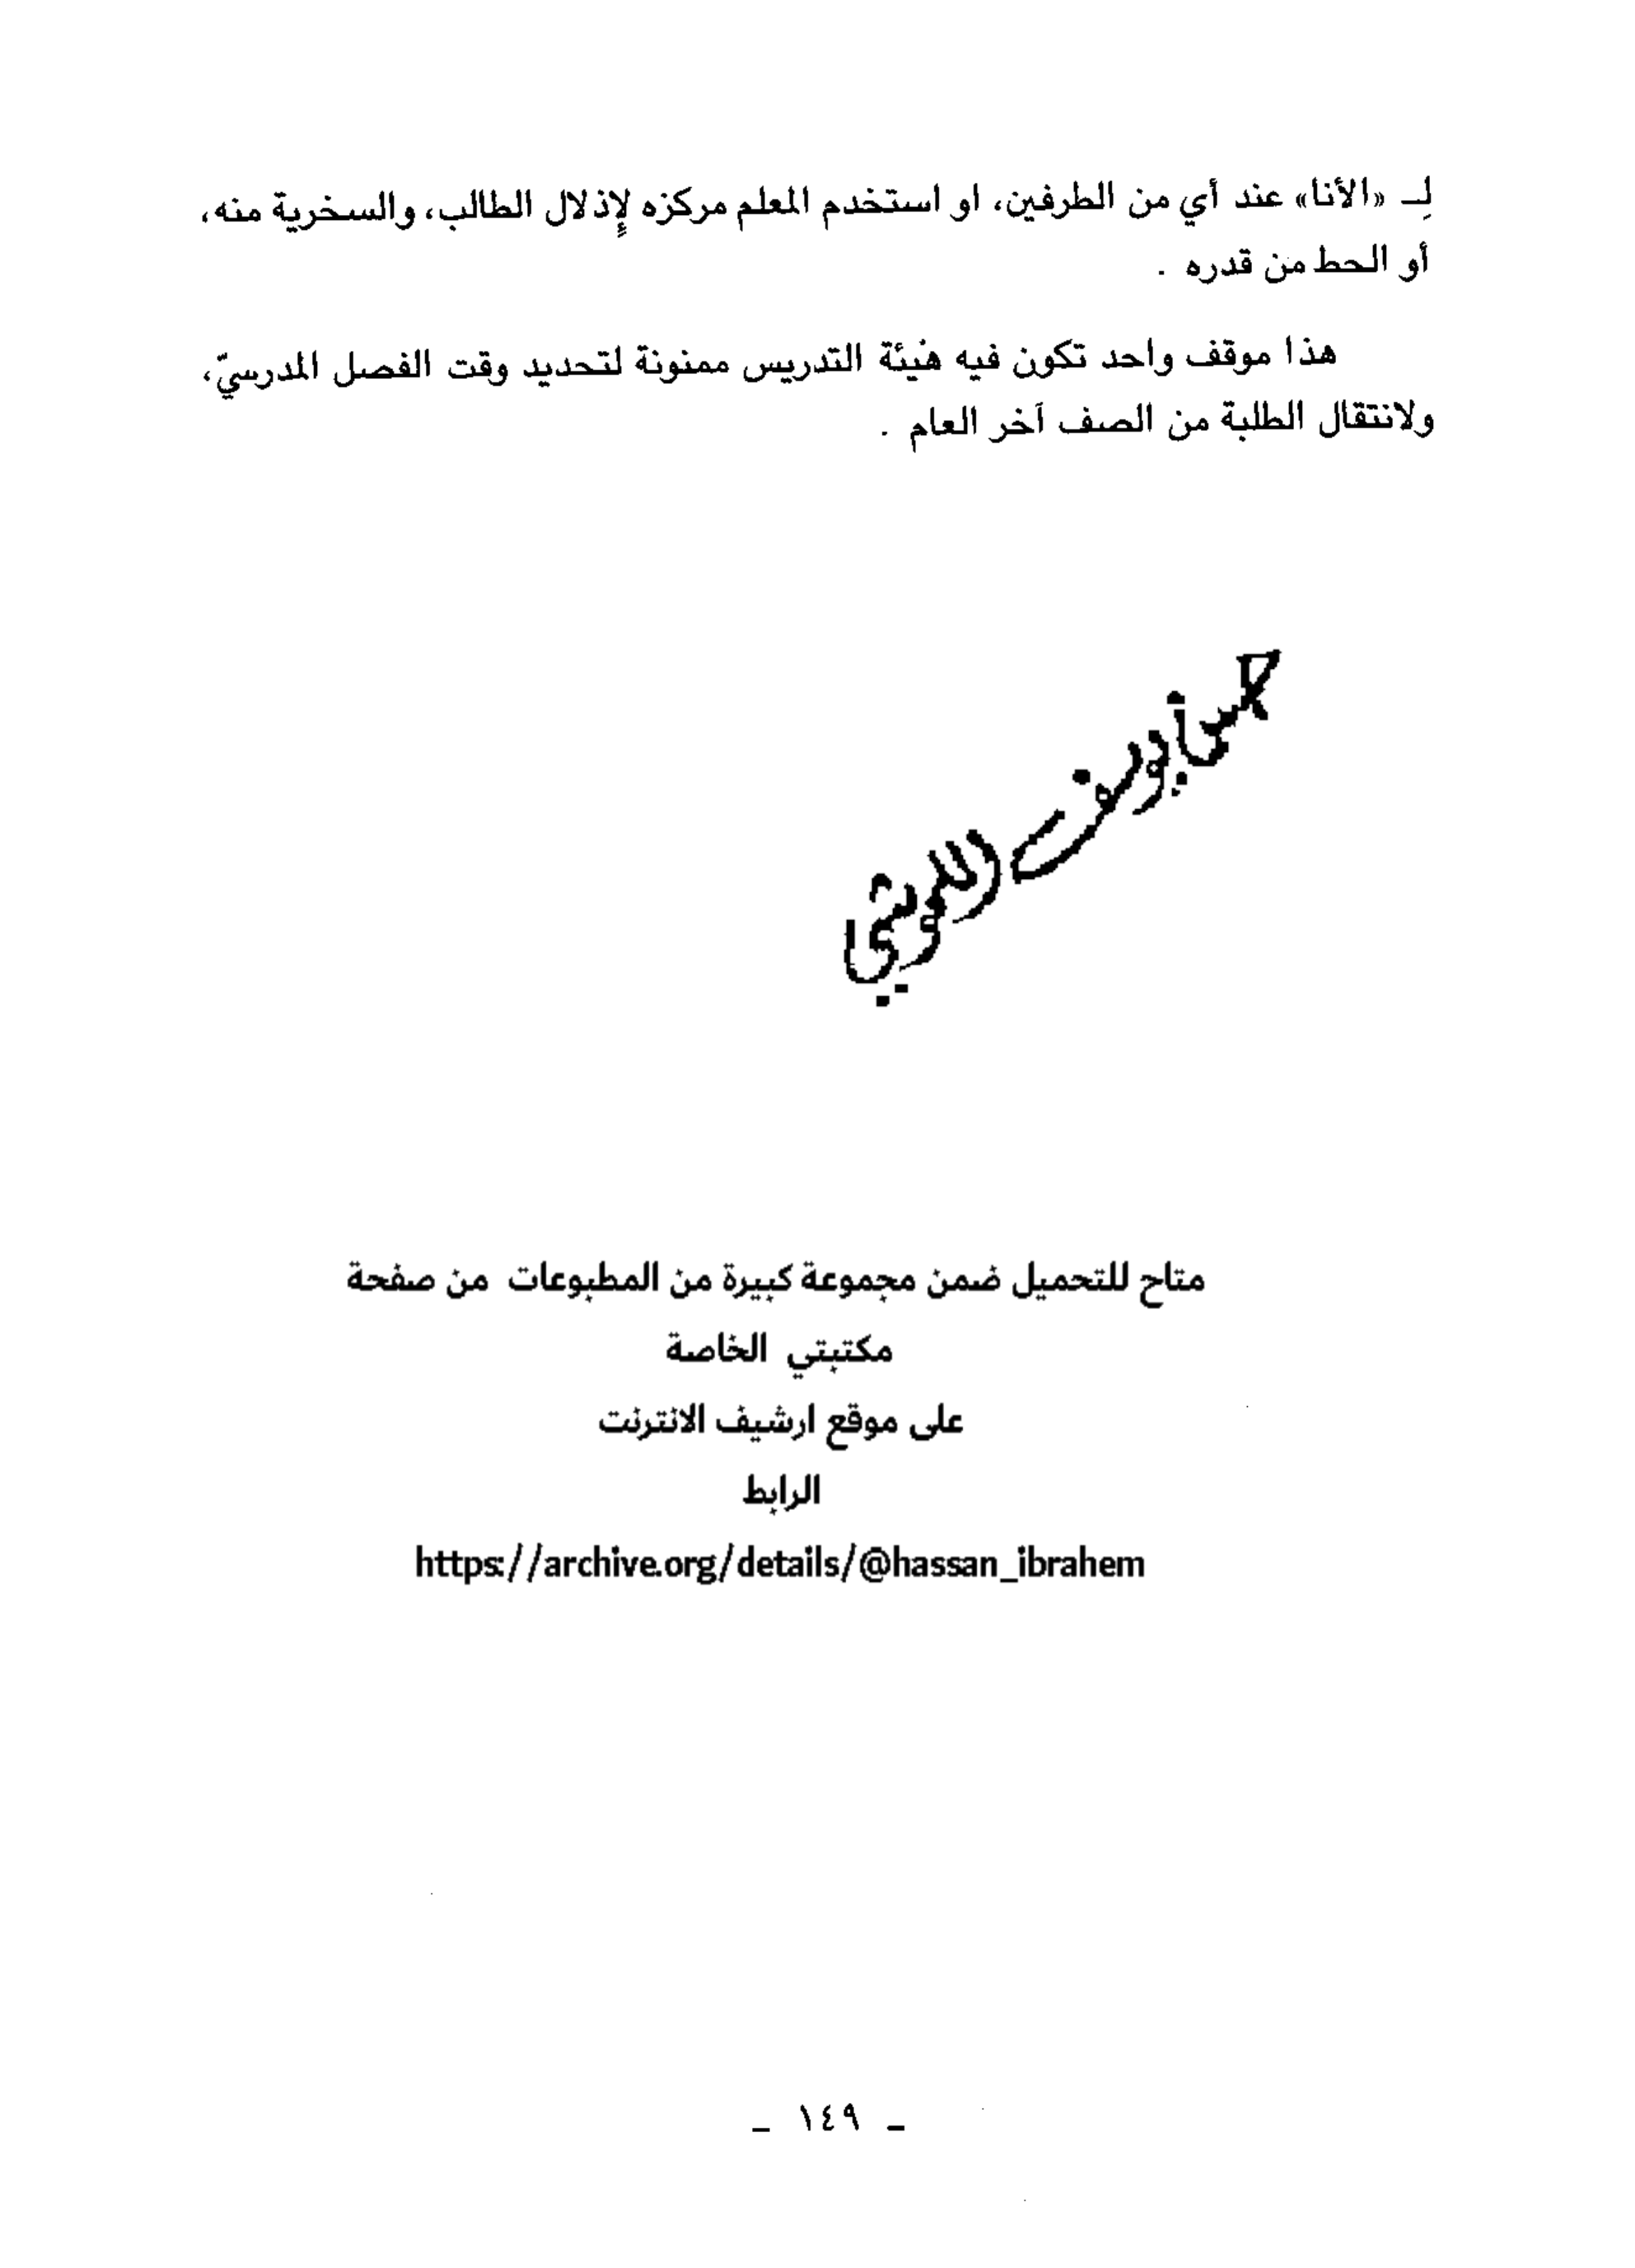 لِـ «الأنا» عند أي من الطرفين، او استخدم المعلم مركزه لإِذلال الطالب، والسخرية منه،
أو الحط من قدره .
هذا موقف واحد تكون فيه هيئة التدريس ممنونة لتحديد وقت الفصل المدرسيّ،
ولانتقال الطلبة من الصف آخر العام .
متاح للتحميل ضمن مجموعة كبيرة من المطبوعات من صفحة
مكتبتي الخاصة
على موقع ارشيف الانترنت
الرابط
https://archive.org/details/@hassan_ibrahem
ـ ١٤٩ ـ